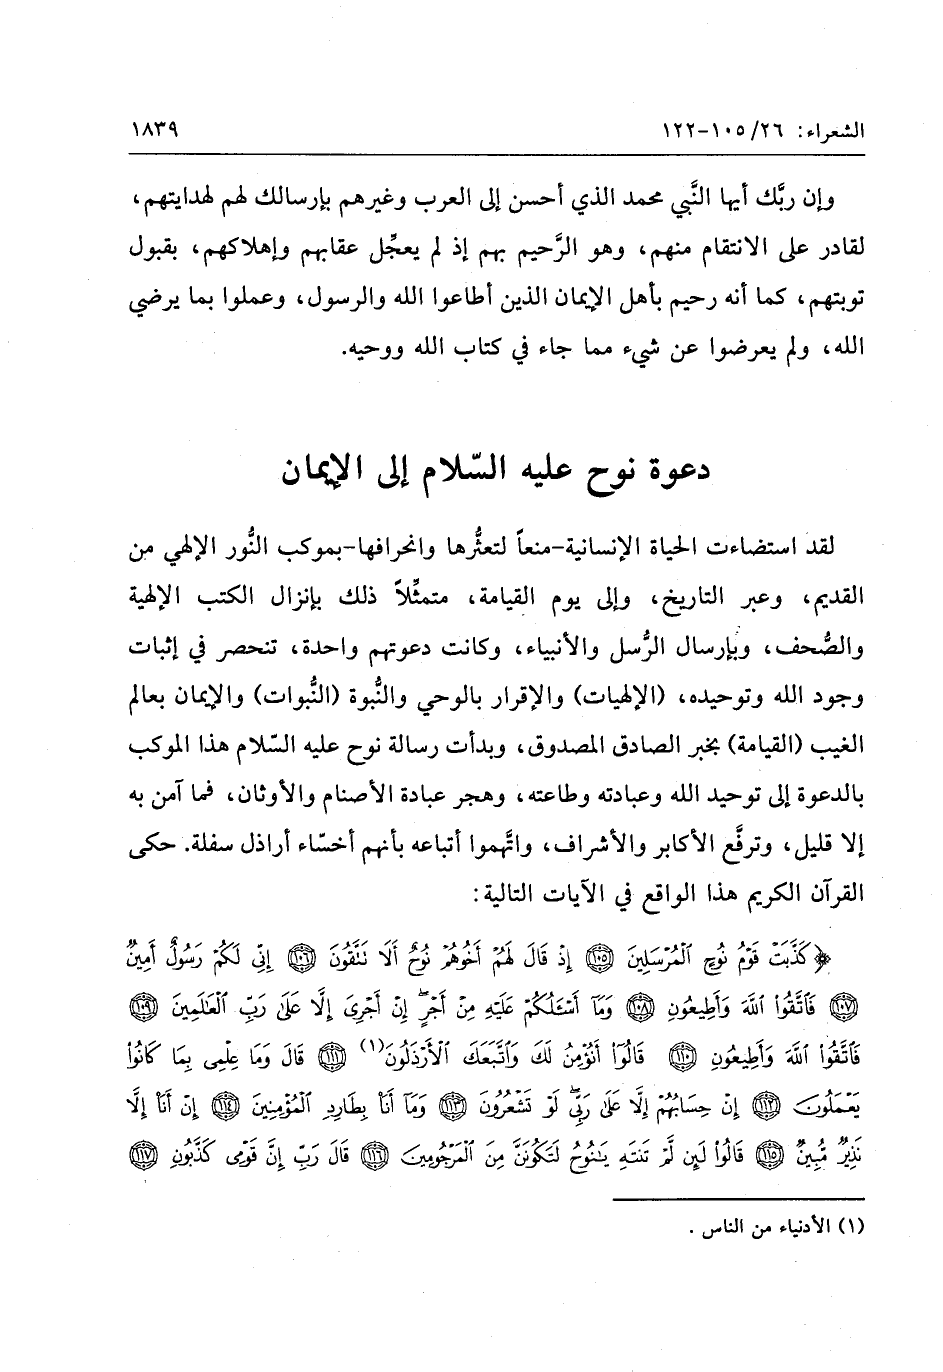 الشعراء: ٢٦/ ١٠٥-١٢٢ ١٨٣٩
وإن ربَّك أيها النَّبي محمد الذي أحسن إلى العرب وغيرهم بإرسالك لهم لهدايتهم،
لقادر على الانتقام منهم، وهو الرَّحيم بهم إذ لم يعجِّل عقابهم وإهلاكهم، بقبول
توبتهم، كما أنه رحيم بأهل الإيمان الذين أطاعوا الله والرسول، وعملوا بما يرضي
الله، ولم يعرضوا عن شيء مما جاء في كتاب الله ووحيه.
دعوة نوح عليه السّلام إلى الإيمان
لقد استضاءت الحياة الإنسانية-منعاً لتعثُّرها وانحرافها-بموكب النُّور الإلهي من
القديم، وعبر التاريخ، وإلى يوم القيامة، متمثِّلاً ذلك بإنزال الكتب الإلهية
والصُّحف، وبإرسال الرُّسل والأنبياء، وكانت دعوتهم واحدة، تنحصر في إثبات
وجود الله وتوحيده، (الإلهيات) والإقرار بالوحي والنُّبوة (النُّبوات) والإيمان بعالم
الغيب (القيامة) بخبر الصادق المصدوق، وبدأت رسالة نوح عليه السّلام هذا الموكب
بالدعوة إلى توحيد الله وعبادته وطاعته، وهجر عبادة الأصنام والأوثان، فما آمن به
إلا قليل، وترفَّع الأكابر والأشراف، واتَّهموا أتباعه بأنهم أخسّاء أراذل سفلة. حكى
القرآن الكريم هذا الواقع في الآيات التالية:
﴿كَذَّبَتْ قَوْمُ نُوحٍ ٱلْمُرْسَلِينَ ١٠٥ إِذْ قَالَ لَهُمْ أَخُوهُمْ نُوحٌ أَلَا نَتَّقُونَ ١٠٦ إِنِّى لَكُمْ رَسُولٌ أَمِينٌ
١٠٧ فَٱتَّقُوا۟ ٱللَّهَ وَأَطِيعُونِ ١٠٨ وَمَآ أَسْـَٔلُكُمْ عَلَيْهِ مِنْ أَجْرٍ إِنْ أَجْرِىَ إِلَّا عَلَىٰ رَبِّ ٱلْعَـٰلَمِينَ ١٠٩
فَٱتَّقُوا۟ ٱللَّهَ وَأَطِيعُونِ ١١٠ قَالُوٓا۟ أَنُؤْمِنُ لَكَ وَٱتَّبَعَكَ ٱلْأَرْذَلُونَ(١) ١١١ قَالَ وَمَا عِلْمِى بِمَا كَانُوا۟
يَعْمَلُونَ ١١٢ إِنْ حِسَابُهُمْ إِلَّا عَلَىٰ رَبِّى لَوْ تَشْعُرُونَ ١١٣ وَمَآ أَنَا۠ بِطَارِدِ ٱلْمُؤْمِنِينَ ١١٤ إِنْ أَنَا۠ إِلَّا
نَذِيرٌ مُّبِينٌ ١١٥ قَالُوا۟ لَئِن لَّمْ تَنتَهِ يَـٰنُوحُ لَتَكُونَنَّ مِنَ ٱلْمَرْجُومِينَ ١١٦ قَالَ رَبِّ إِنَّ قَوْمِى كَذَّبُونِ ١١٧
(١) الأدنياء من الناس .